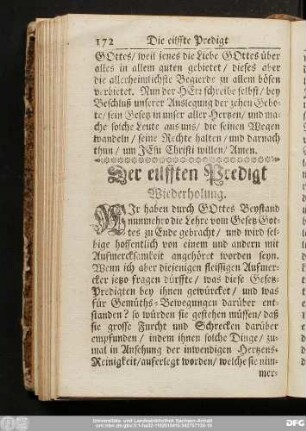 172 Die eilffte Predigt
GOttes/ weil jenes die Liebe GOttes über
alles in allem guten gebietet/ dieses aber
die allerheimlichste Begierde zu allem bösen
verbietet. Nun der HErr schreibe selbst/ bey
Beschluß unserer Auslegung der zehen Gebo-
te/ sein Gesetz in unser aller Hertzen/ und ma-
che solche Leute aus uns/ die in seinen Wegen
wandeln/ seine Rechte halten/ und darnach
thun/ um JEsu Christi willen/ Amen.
Der eilfften Predigt
Wiederholung.
WIr haben durch GOttes Beystand
nunmehro die Lehre vom Gesetz Got-
tes zu Ende gebracht/ und wird sel-
bige hoffentlich von einem und andern mit
Aufmercksamkeit angehöret worden seyn.
Wenn ich aber diejenigen fleissigen Aufmer-
cker jetzo fragen dürffte/ was diese Gesetz-
Predigten bey ihnen gewürcket/ und was
für Gemüths-Bewegungen darüber ent-
standen? so würden sie gestehen müssen/ daß
sie grosse Furcht und Schrecken darüber
empfunden/ indem ihnen solche Dinge/ zu-
mal in Ansehung der inwendigen Hertzens-
Reinigkeit/ auferlegt worden/ welche sie nim-
mer-